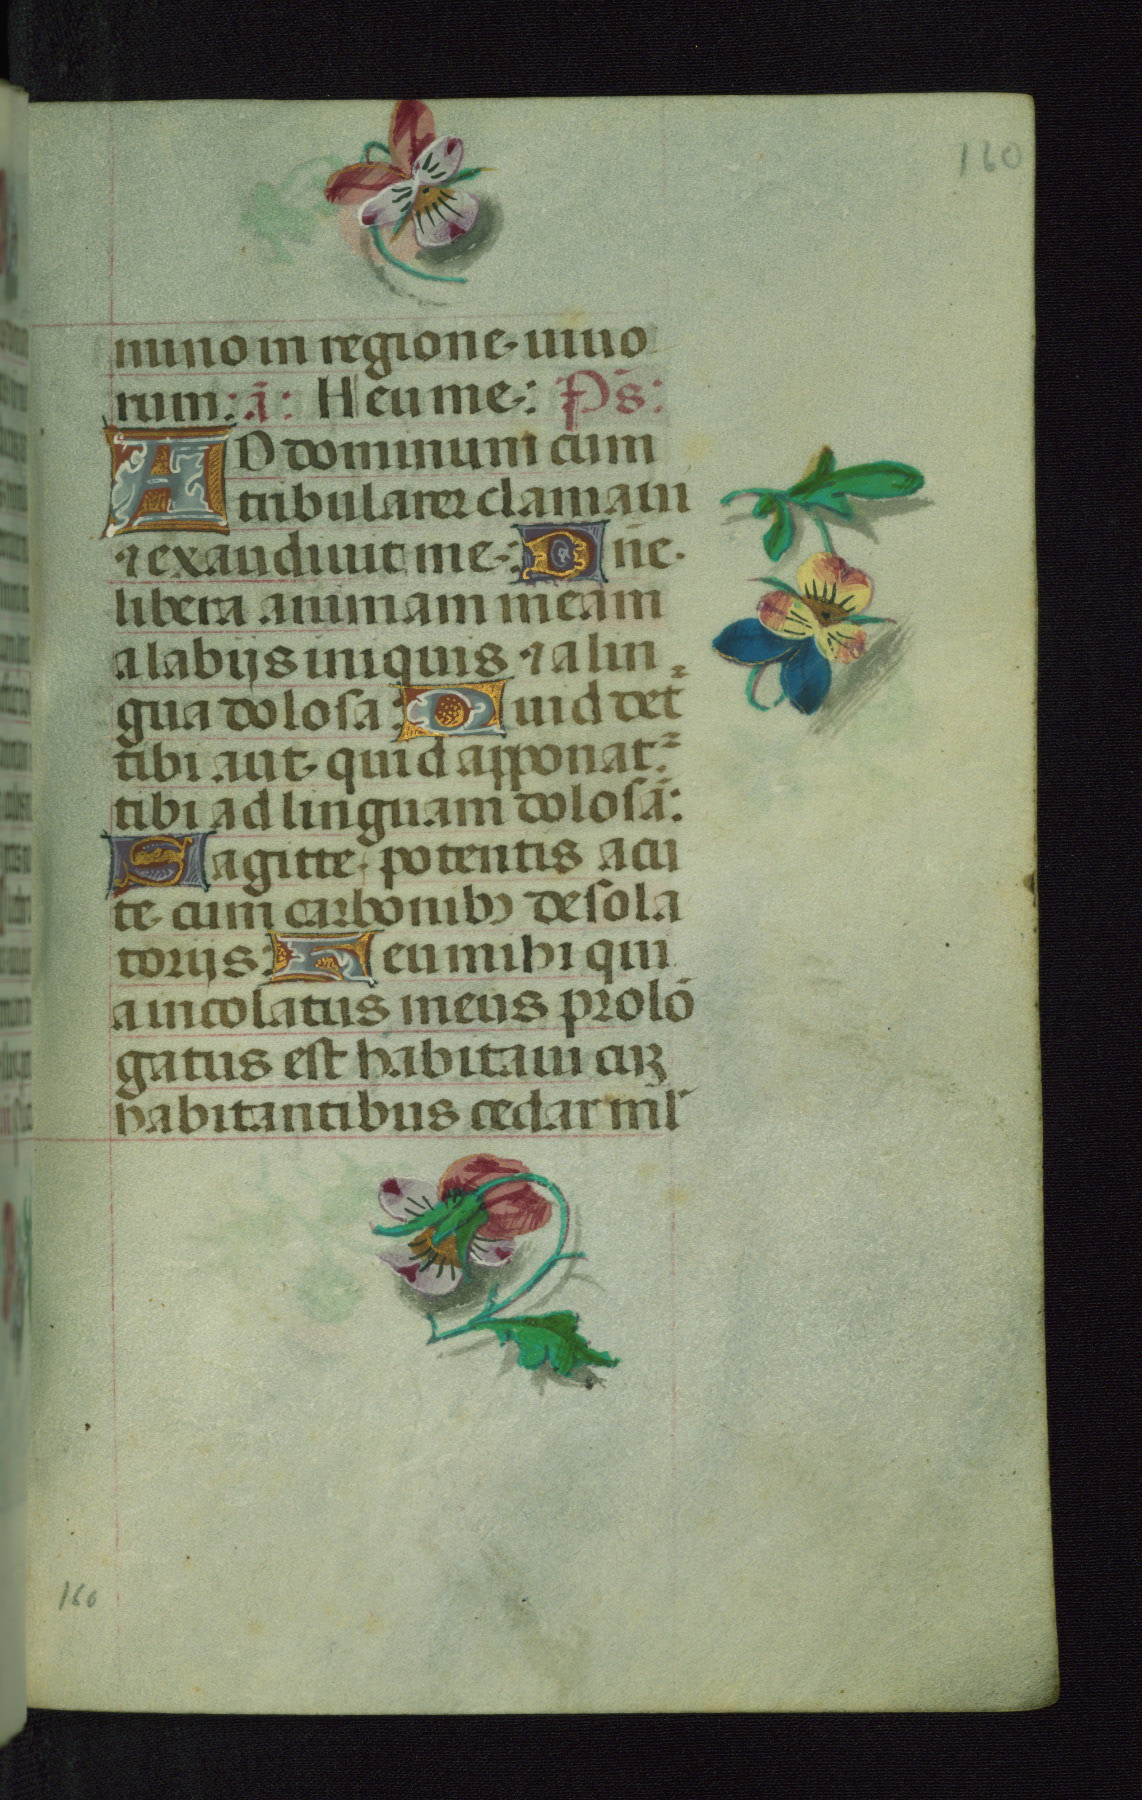 160
mino in regione uiuo
rum: a̅: Heu me: Ps̅:
AD dominum cum
tribularer clamaui
⁊ exaudiuit me: Dn̅e
libera animam meam
a labijs iniquis ⁊ a lin
gua dolosa: Quid det̅
tibi aut quid apponatᷣ
tibi ad linguam dolosā:
Sagitte potentis acu
te cum carbonibꝫ desola
torijs: Heu mihi qui
a incolatus meus prolō
gatus est habitaui cuꝫ
habitantibus cedar ml̅
160